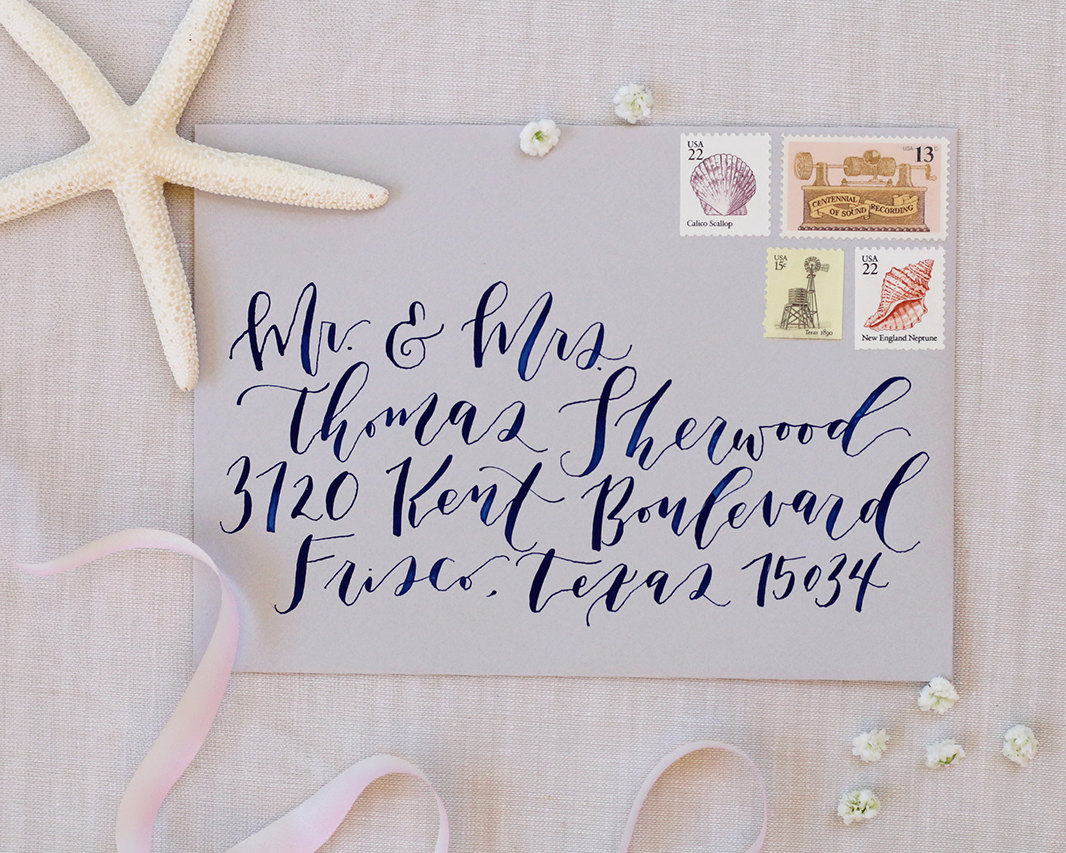 USA
22
Calico Scallop
USA 13c
CENTENNIAL
OF SOUND RECORDING
USA
15c
Texas 1890
USA
22
New England Neptune
Mr. & Mrs.
Thomas Sherwood
3720 Kent Boulevard
Frisco, Texas 75034